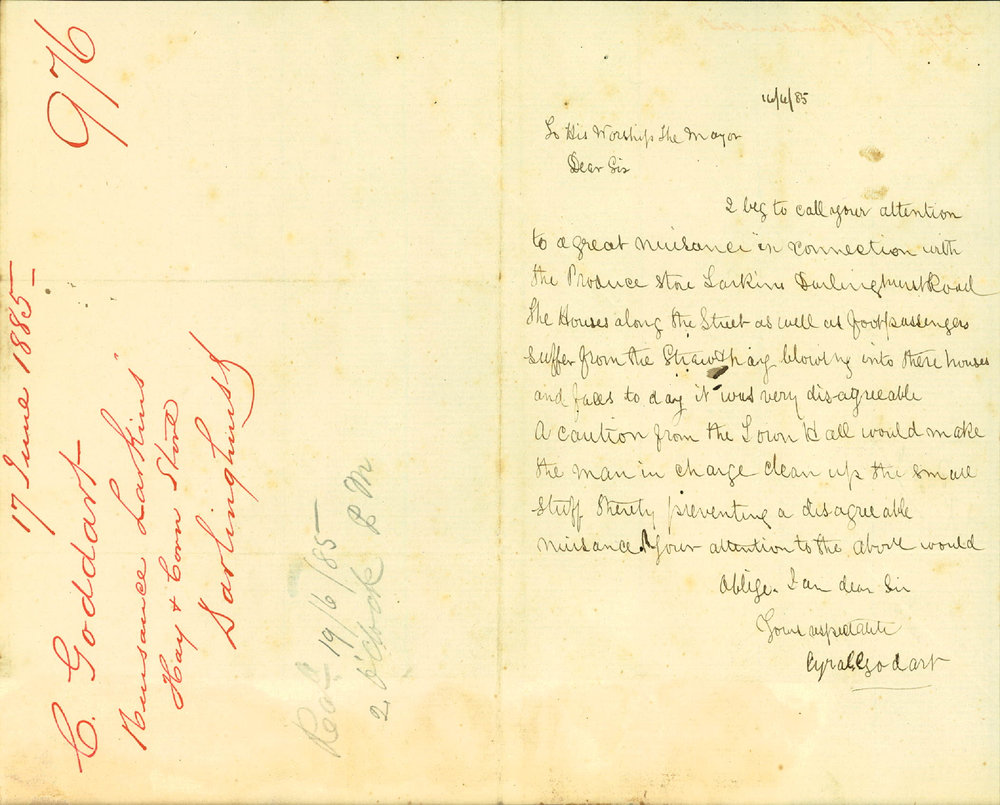 976
17 June 1885 –
C. Goddart
Nuisance Larkins"
Hay & Corn Store
Darlinghurst
Recd 19/6/85 –
2 o'clock P M
16/6/85
To His Worship The Mayor
Dear Sir
I beg to call your attention
to a great nuisance in connection with
the Produce Store Larkins Darlinghurst Road
The Houses along the Street as well as footpassengers
suffer from the Straw & hay blowing into there houses
and faces to day it was very disagreeable
A caution from the Town Hall would make
the man in charge clean up the small
stuff thereby preventing a disagreeable
nuisance Your attention to the above would
Oblige. I am dear Sir
Yours respectable
Cyral Godart